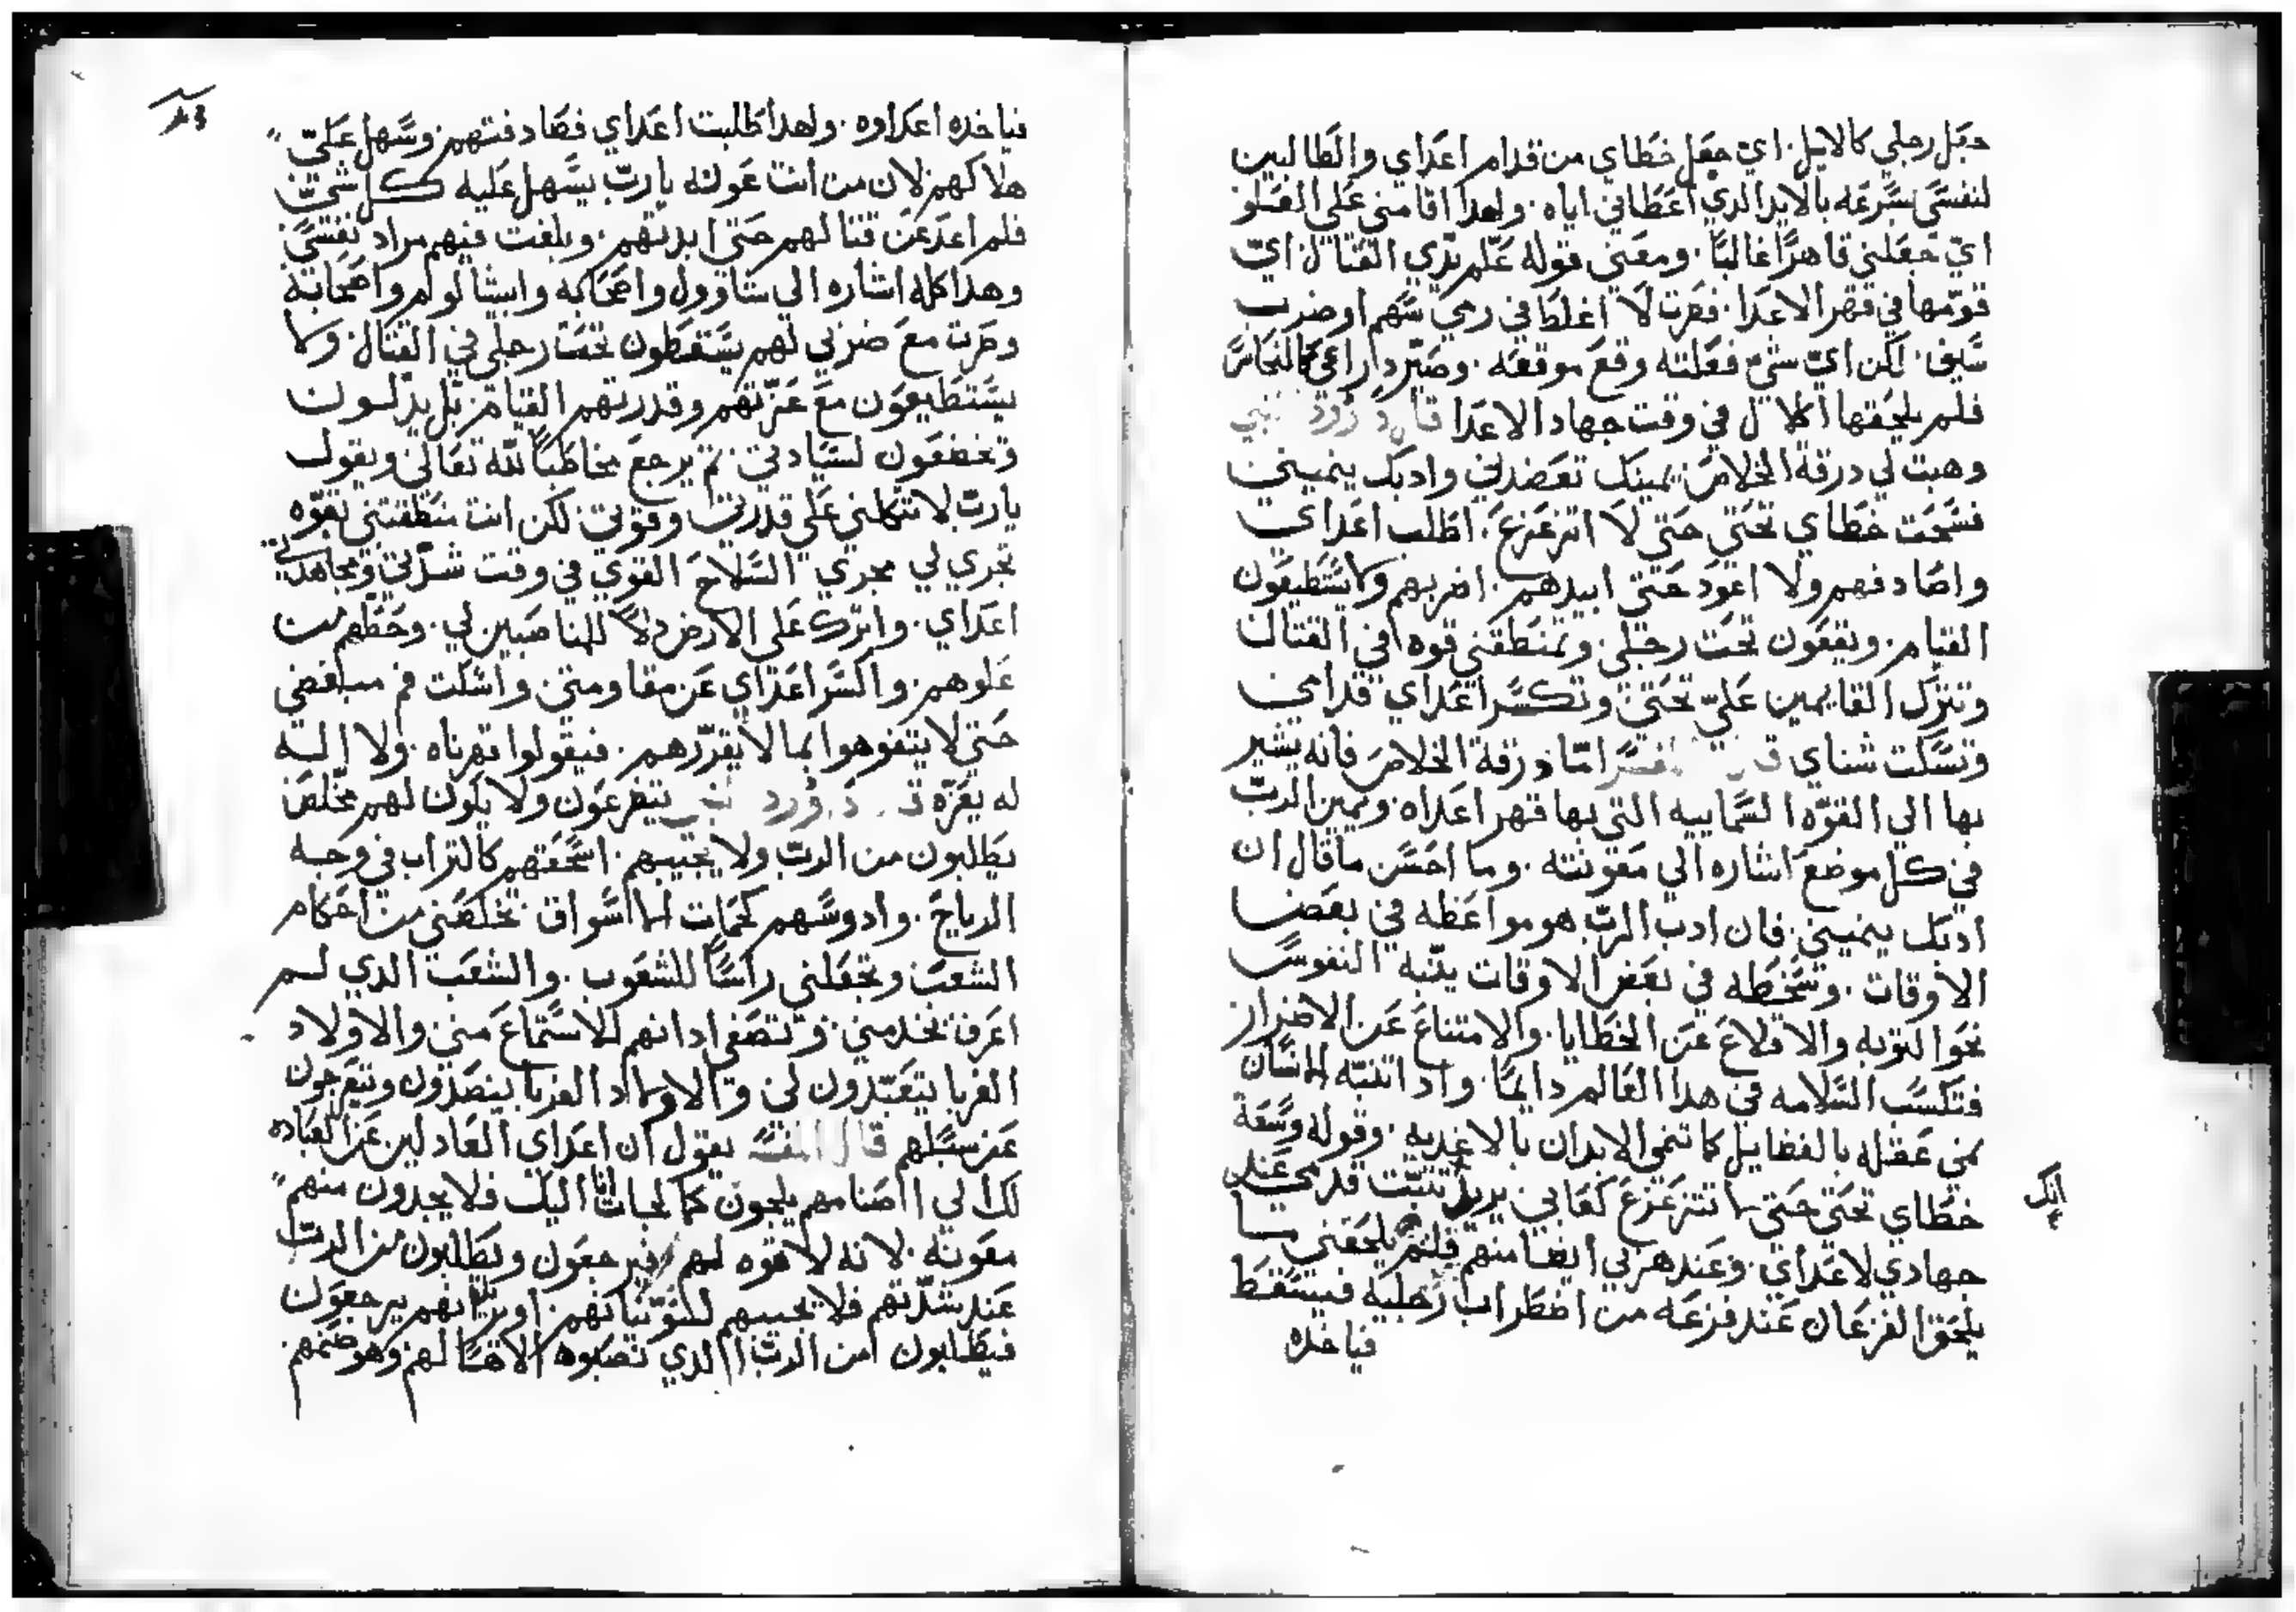 جعَل رجلي كالايل. اي جعَل خطاي من قدام اعَداي والطالبين
لنفسي بسرعَه بالايد الدي اعَطاني اياه. ولهدا اقامني عَلي العَلو
اي جعَلني قاهرًا غالبًا. ومعَني قوله عَلّم يدَي القتال اي
قوّمها في قهر الاعَدا. فصَرت لا اغلط في رمي سَهم او ضرب
سَيف. لكن ايّ شي فعَلته وقعَ موقعَه. وصَيّر دراعَي كالنحاسَ
فلم يلحقها كلال في وقت جهاد الاعَدا قال داوود النبي
وهبت لي درقة الخلاصَ. يمينك تعَضدني وادبك ينميني
فسَحَت خطاي تحَتي حَتي لا اتزعَزعَ. اطلب اعَداي
واصَادفهم ولا اعَود حَتي ابيدهم. اضربهم ولا يسَتطيعَون
القيام. ويقعَون تحَت رجلي. وتمنطقني قوه في القتال
وتترك القايمين عَليّ تحَتي وتكسَر اعَداي قدامي
وتسَكت شناي قال المفسَر امّا درقة الخلاصَ فانه يشير
بها الي القوّه السَماييه التي بها قهر اعَداه. ويمين الربّ
في كل موضعَ اشاره الي معَونته. وما احَسَن ما قال ان
ادبك ينميني. فان ادب الربّ هو مواعَظه في بعَض
الاوقات. وسَخَطه في بعَض الاوقات ينبّه النفوسَ
نحَو التوبه والاقلاعَ عَن الخطايا. والامتناعَ عَن الاضرار
فتكسَب السَلامه في هدا العَالم دايمًا. وادا تنبّه الانسَان
نمي عَقله بالفضايل كما تنمي الابدان بالاغديه. وقوله وسَعَة
خطاي تحَتي حَتي لا تتزعَزعَ كعَابي يريد تثبّت قدمي عَند
جهادي لاعَداي. وعَند هربي ايضا منهم فلم يلحَقني ما
يلحَق الفزعَان عَند فزعَه من اضطراب رجليه فيسَقط
فياخده
فياخده اعَداوه. ولهدا طلبت اعَداي فصَادفتهم. وسَهل عَليّ
هلاكهم. لان من انت عَونه يا ربّ يسَهل عَليه كل شي
فلم اعَد عَن قتالهم حَتي ابدتهم. وبلغت فيهم مراد نفسَي
وهدا كله اشاره الي شاوول واصَحَابه وابيشالوم واصَحَابه
وصَرت معَ ضربي لهم يسَقطون تحَت رجلي في القتال. ولا
يسَتطيعَون معَ عَزّتهم وقدرتهم القيام. بل يدلون
وتخضعَون لسَيادتي. ثم يرجعَ مخاطبًا لله تعَالي ويقول
يا ربّ لا تتكلني عَلي قدرتي وقوتي لكن انت منطقتني بقوّه
تجري لي مجري السَلاحَ القوي في وقت شدّتي ومجاهدتي
اعَداي. واترك عَلي الارض دلًا للناصَبين لي. وحَطهم من
عَلوهم. واكسَر اعَداي عَن مقاومتي. واسكت فم مبغضي
حَتي لا يتفوهوا بما لا يقرّرهم. فيقولوا قهرناه. ولا اله
له يعَزّه قال داوود النبي يتضرعَون ولا يكون لهم مخلّصَ
يطلبون من الربّ ولا يجيبهم. اسَحَقهم كالتراب في وجه
الرياحَ. وادوسَهم كحَمات الاسَواق. تخلصَني من احَكام
الشعَب وتجعَلني راسًا للشعَوب. والشعَب الدي لم
اعَرف تخدمني. وتصَغي ادانهم للاسَتماعَ مني. والاولاد
الغربا يتعَبّدون لي. والاولاد الغربا ينصَدون ويتعَرجون
عَن سَبلهم قال المفسَر يقول ان اعَداي العَادلين عَن العَباده
لك الي اصَنامهم يلجون كما لجات انا اليك فلا يجدون منهم
معَونه. لانه لا قوه لهم. فيرجعَون ويطلبون من الربّ
عَند شدّتهم فلا يجيبهم يرجعَون
فيطلبون من الربّ الدي نصَبوه الاهًا لهم وهو صَنمهم